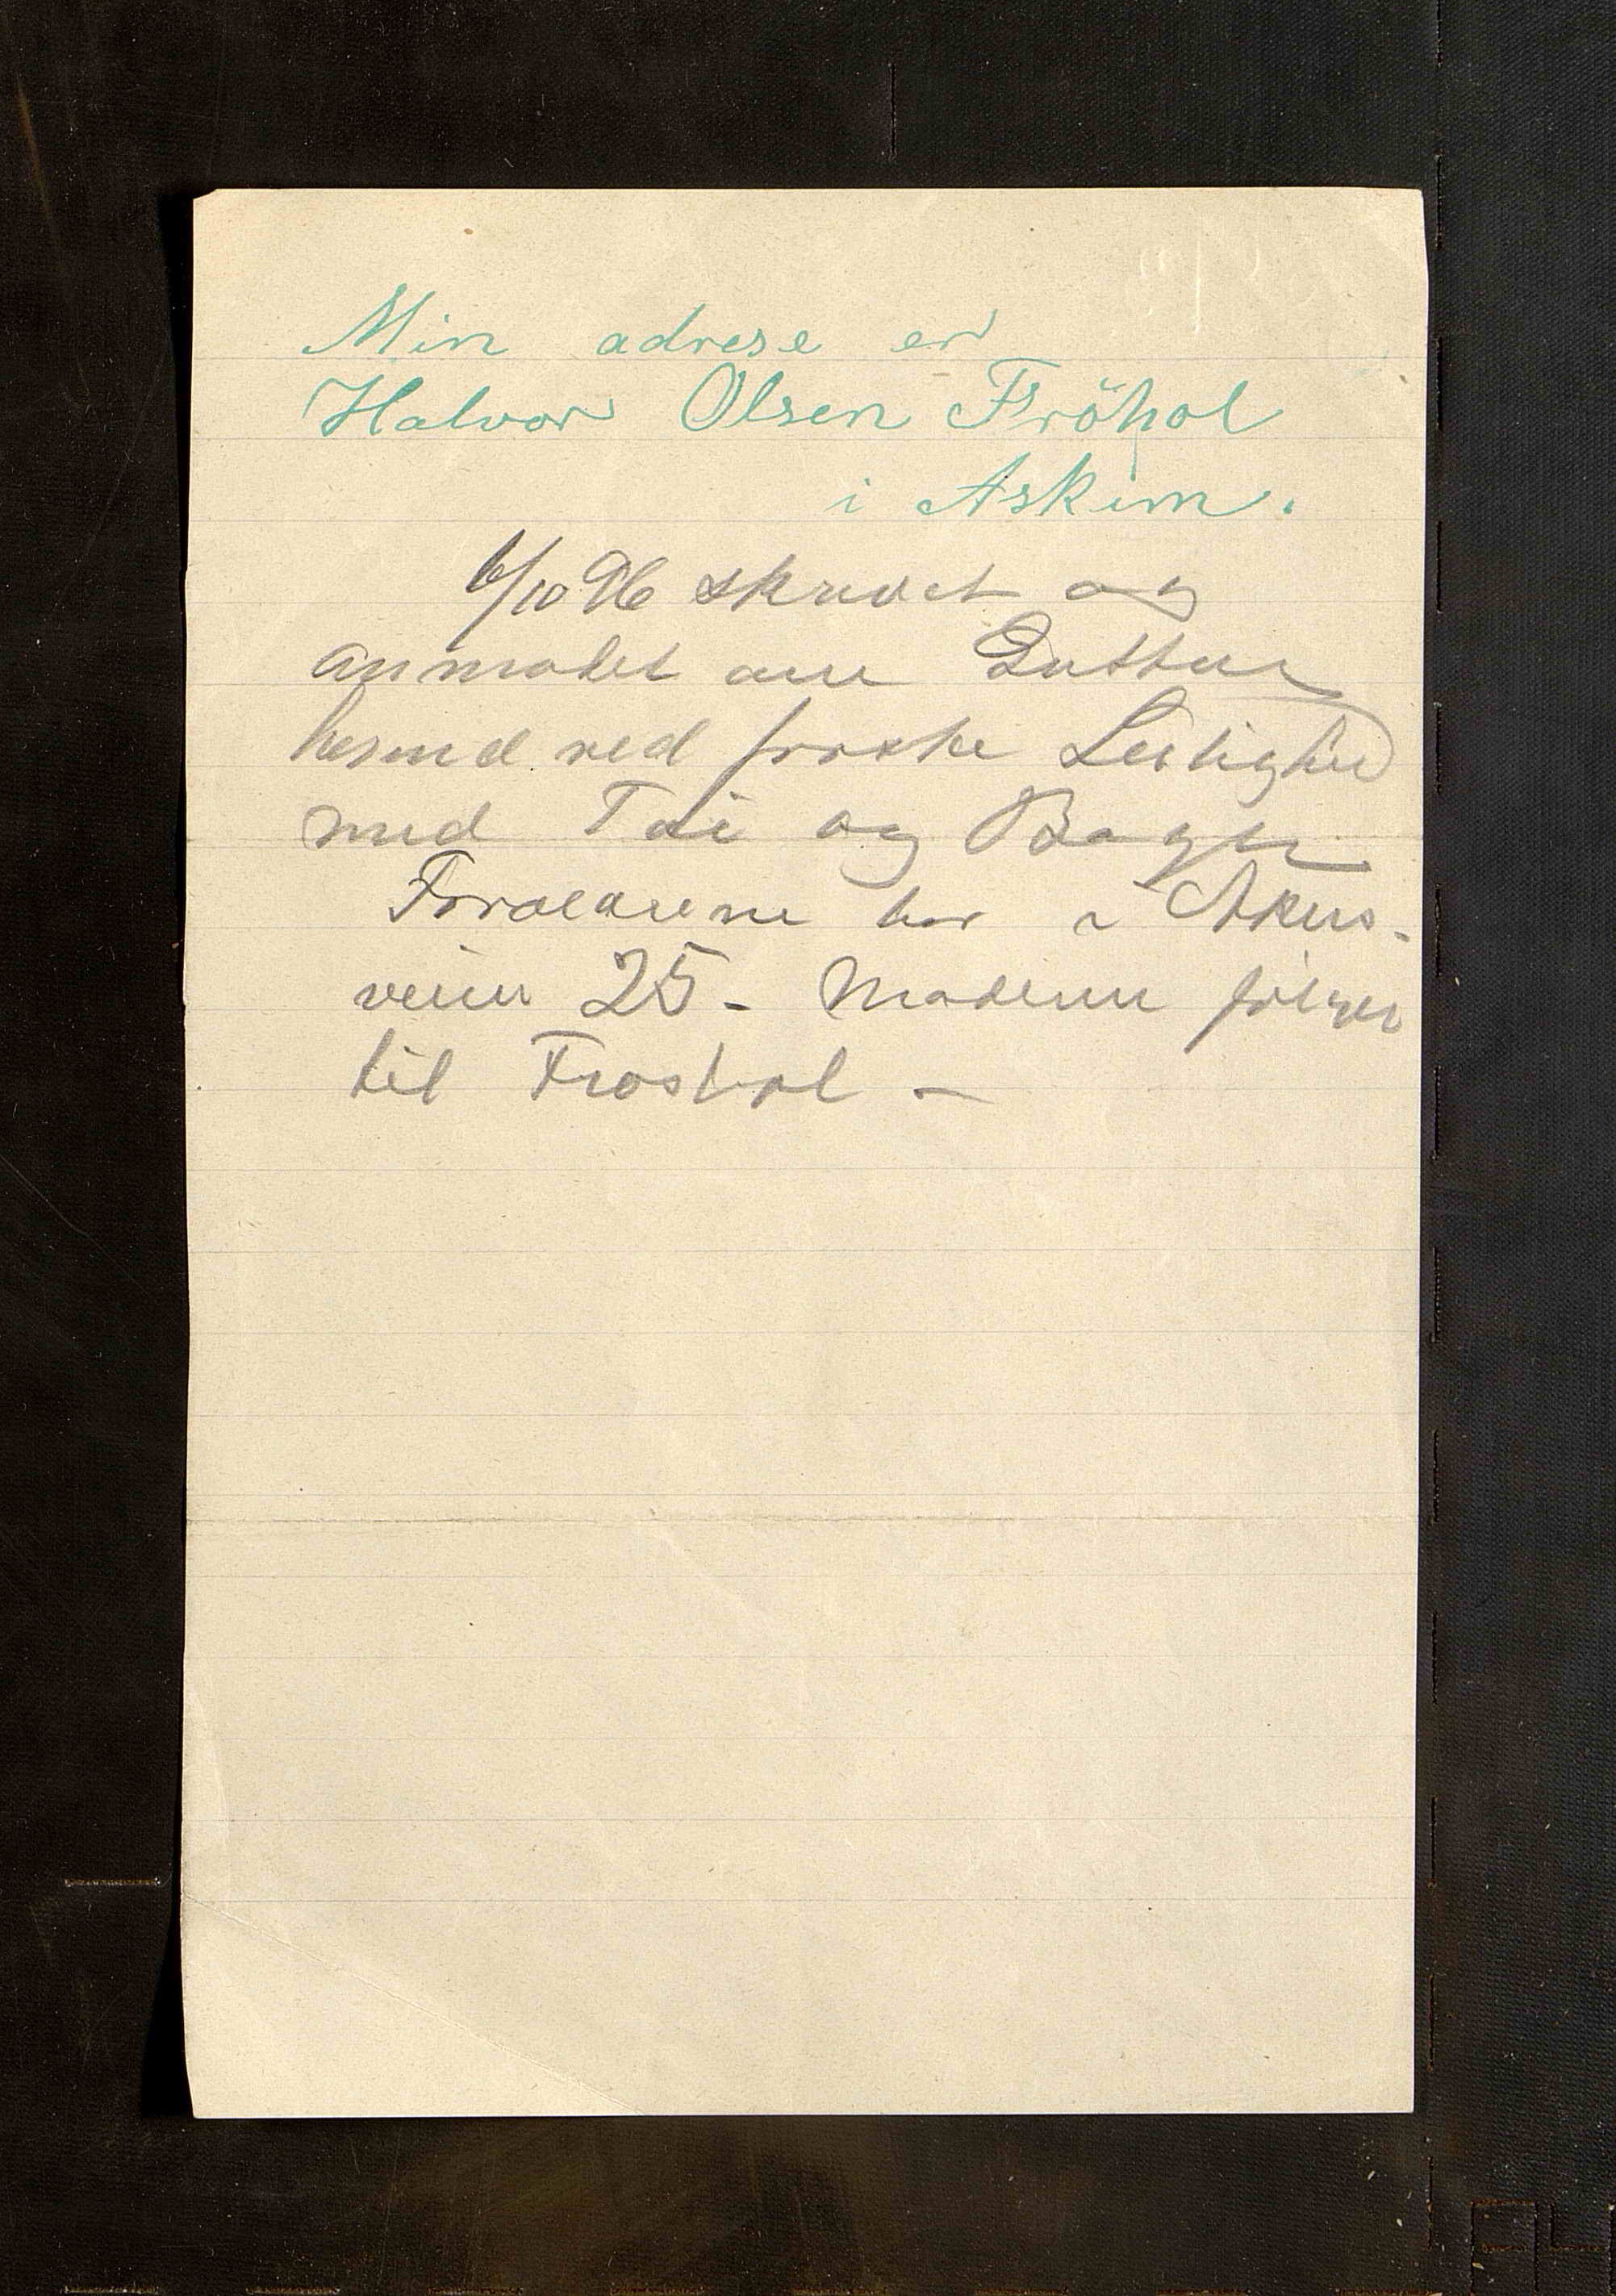 Min adrese er
Halvor Olsen Fröshol
i Askim.
6/10 96 skrevet og
anmodet om Gutten
hersend ved første Leilighed
med Tøi og Bøger
Forældrene bor i Akers-
veien 25 - Moderen følger
til Froshol -